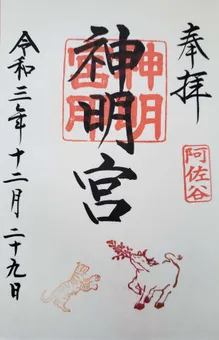 奉拝
阿佐谷
神明宮
神明宮
令和三年十二月二十九日